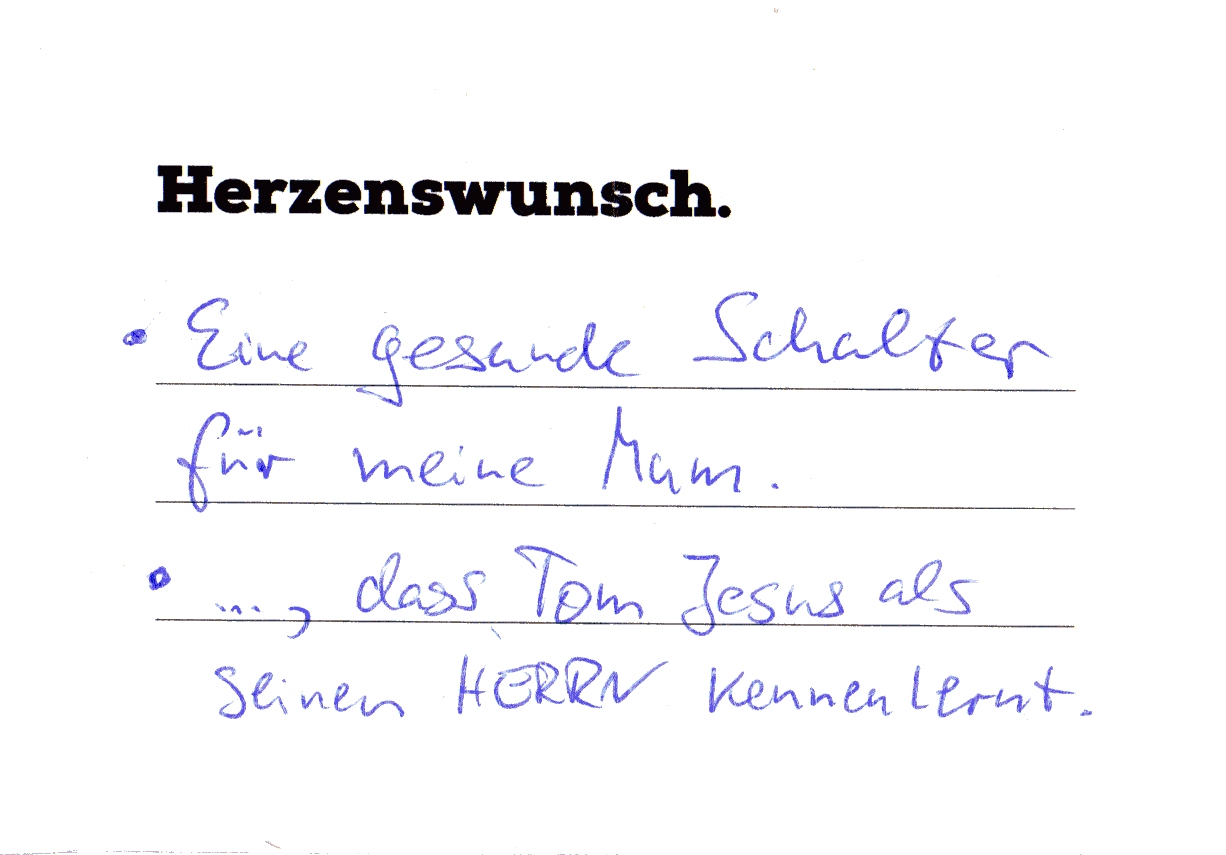 Herzenswunsch.
• Eine gesunde Schalter
für meine Mam.
• ..., dass Tom Jesus als
seinen HERRN kennenlernt.